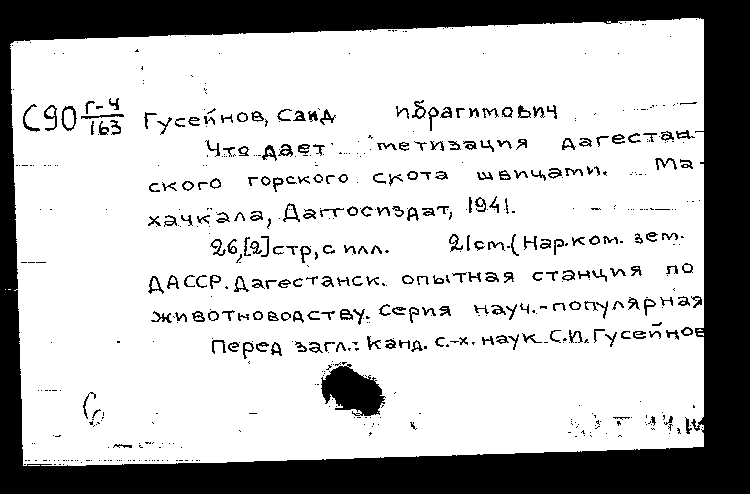 С90 Г-4/163 Гусейнов, Саид Ибрагимович
Что дает метизация дагестан-
ского горского скота швицами. Ма-
хачкала, Даггосиздат, 1941.
26,[2]стр, с илл. 21см.(Нар.ком. зем.
ДАССР. Дагестанск. опытная станция по
животноводству. Серия науч.-популярная
Перед загл.: Канд. с.-х. наук С.И. Гусейнов
6